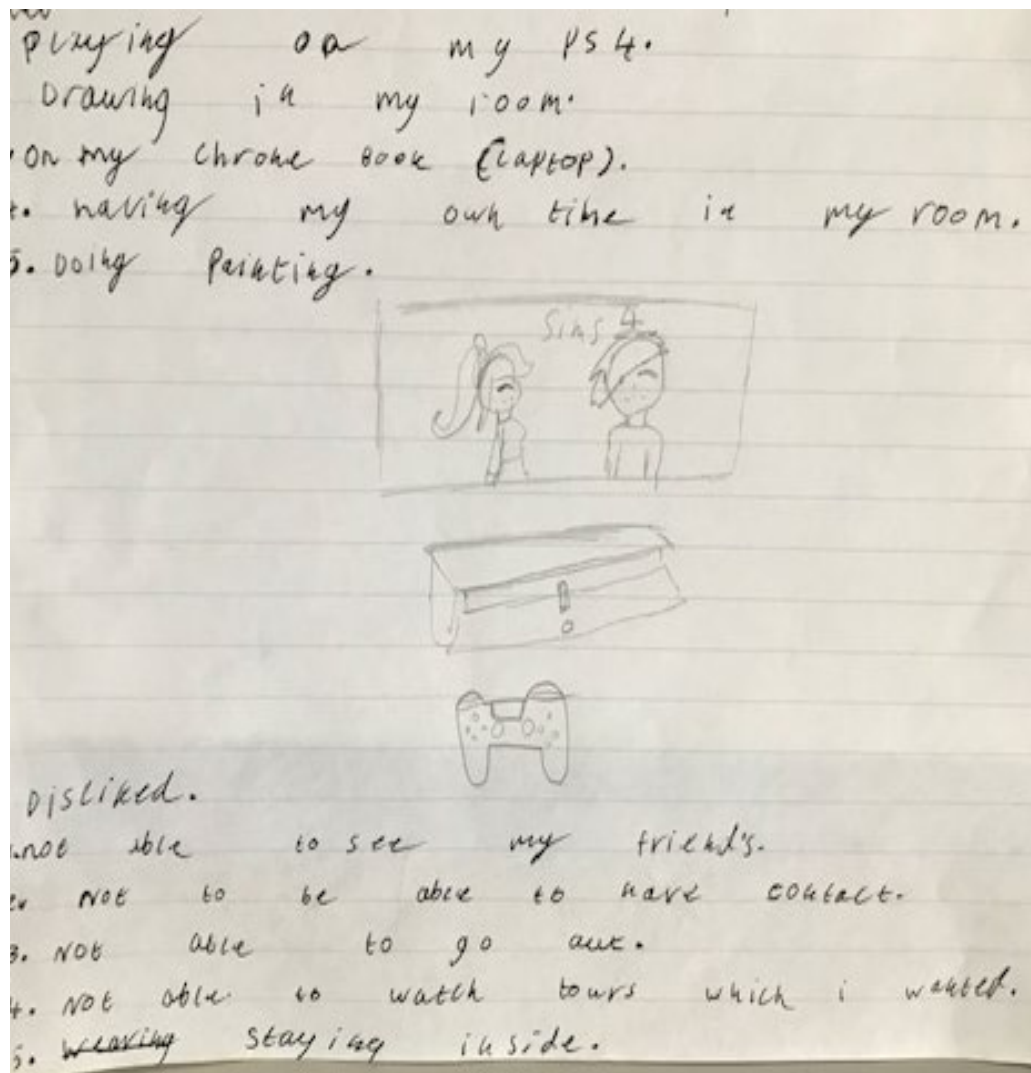 playing on my PS4.
Drawing in my room.
On my chrome Book (Laptop).
4. having my own time in my room.
5. Doing Painting.
Sims 4
Disliked.
1. not able to see my friend's.
2. Not to be able to have contact.
3. Not able to go out.
4. Not able to watch tours which i wanted.
5. staying inside.